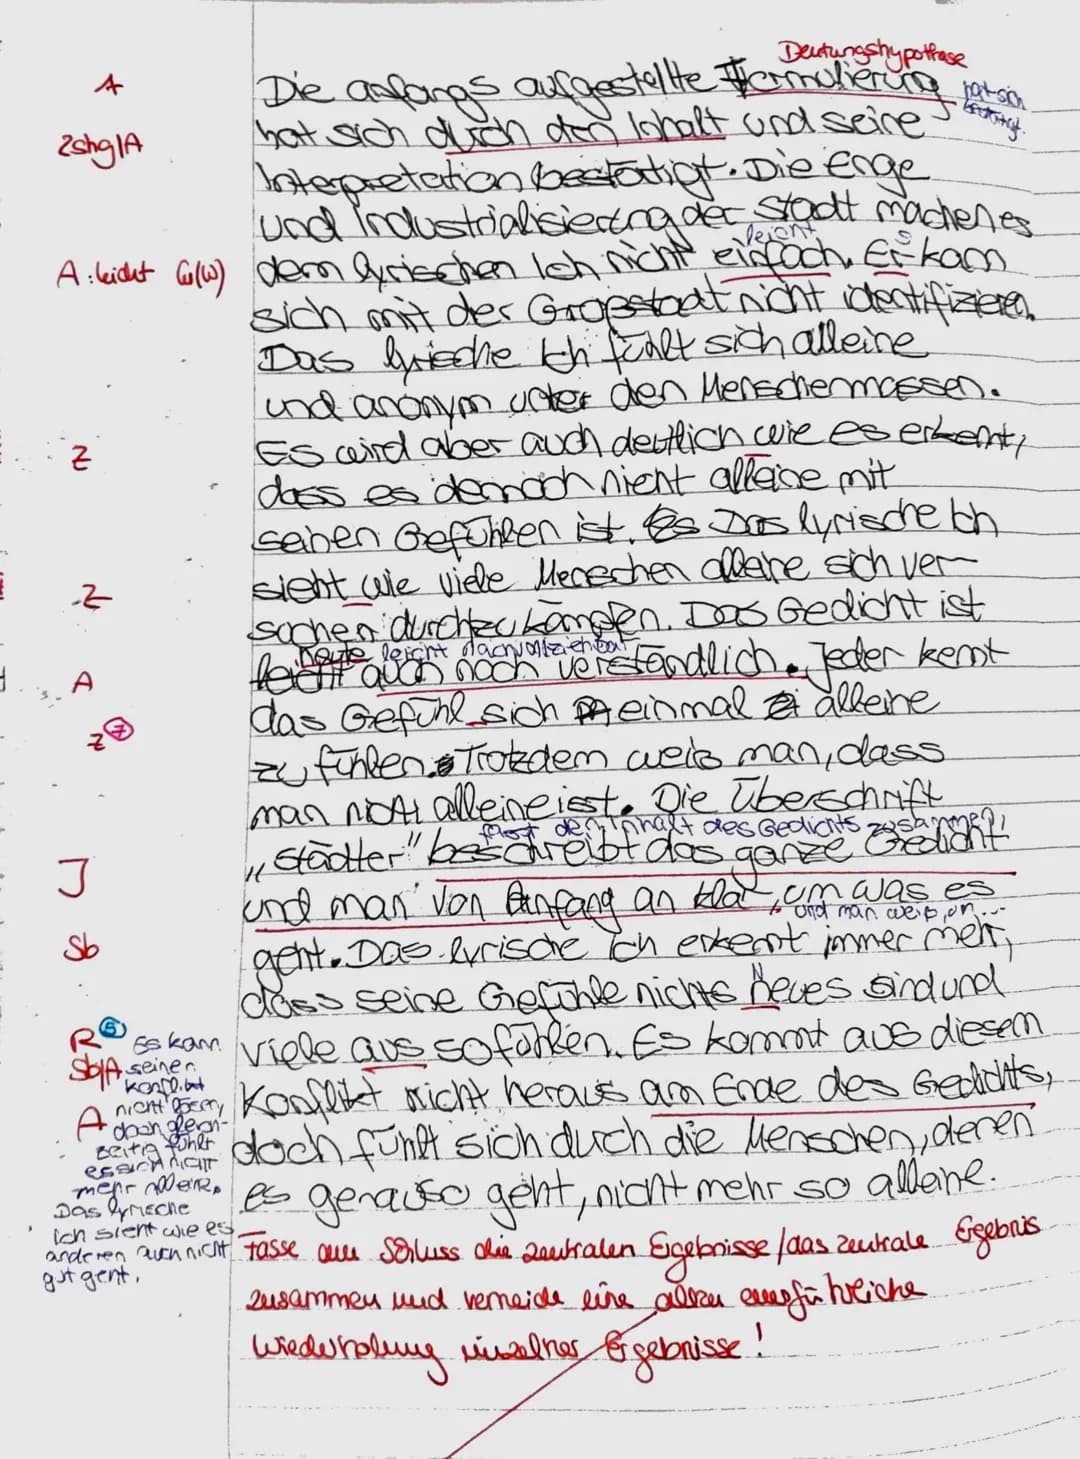 Deutungshypothese
A Die anfangs aufgestellte Formulierung hat sich bestätigt.
Zshg/A hat sich durch den Inhalt und seine
Interpretation bestätigt. Die Enge
und Industrialisierung der Stadt machen es
leicht s
A: leicht G(W) dem lyrischen Ich nicht einfach. Er kann
sich mit der Großstadt nicht identifizieren.
Das lyrische Ich fühlt sich alleine
und anonym unter den Menschenmassen.
Z Es wird aber auch deutlich wie es erkennt,
dass es dennoch nicht alleine mit
seinen Gefühlen ist. Es Das lyrische Ich
Z sieht wie viele Menschen alleine sich ver-
suchen durchzukämpfen. Das Gedicht ist
heute leicht nachvollziehbar
A leicht auch noch verständlich. Jeder kennt
Z 7 das Gefühl sich einmal alleine
zu fühlen. Trotzdem weiß man, dass
man nicht alleine ist. Die Überschrift
fasst den Inhalt des Gedichts zusammen,
J „Städter" beschreibt das ganze Gedicht
und man von Anfang an klar, um was es
und man weiß, um...
Sb geht. Das lyrische Ich erkennt immer mehr,
N
dass seine Gefühle nichts neues sind und
R 5 viele aus so fühlen. Es kommt aus diesem
Sb/A Konflikt nicht heraus am Ende des Gedichts,
A doch fühlt sich durch die Menschen, denen
es genauso geht, nicht mehr so alleine.
Es kann
seinen
Konflikt
nicht lösen,
doch gleich-
zeitig fühlt
es sich nicht
mehr alleine.
Das lyrische
Ich sieht wie es
anderen auch nicht
gut geht.
Fasse am Schluss die zentralen Ergebnisse / das zentrale Ergebnis
zusammen und vermeide eine allzu ausführliche
Wiederholung einzelner Ergebnisse!